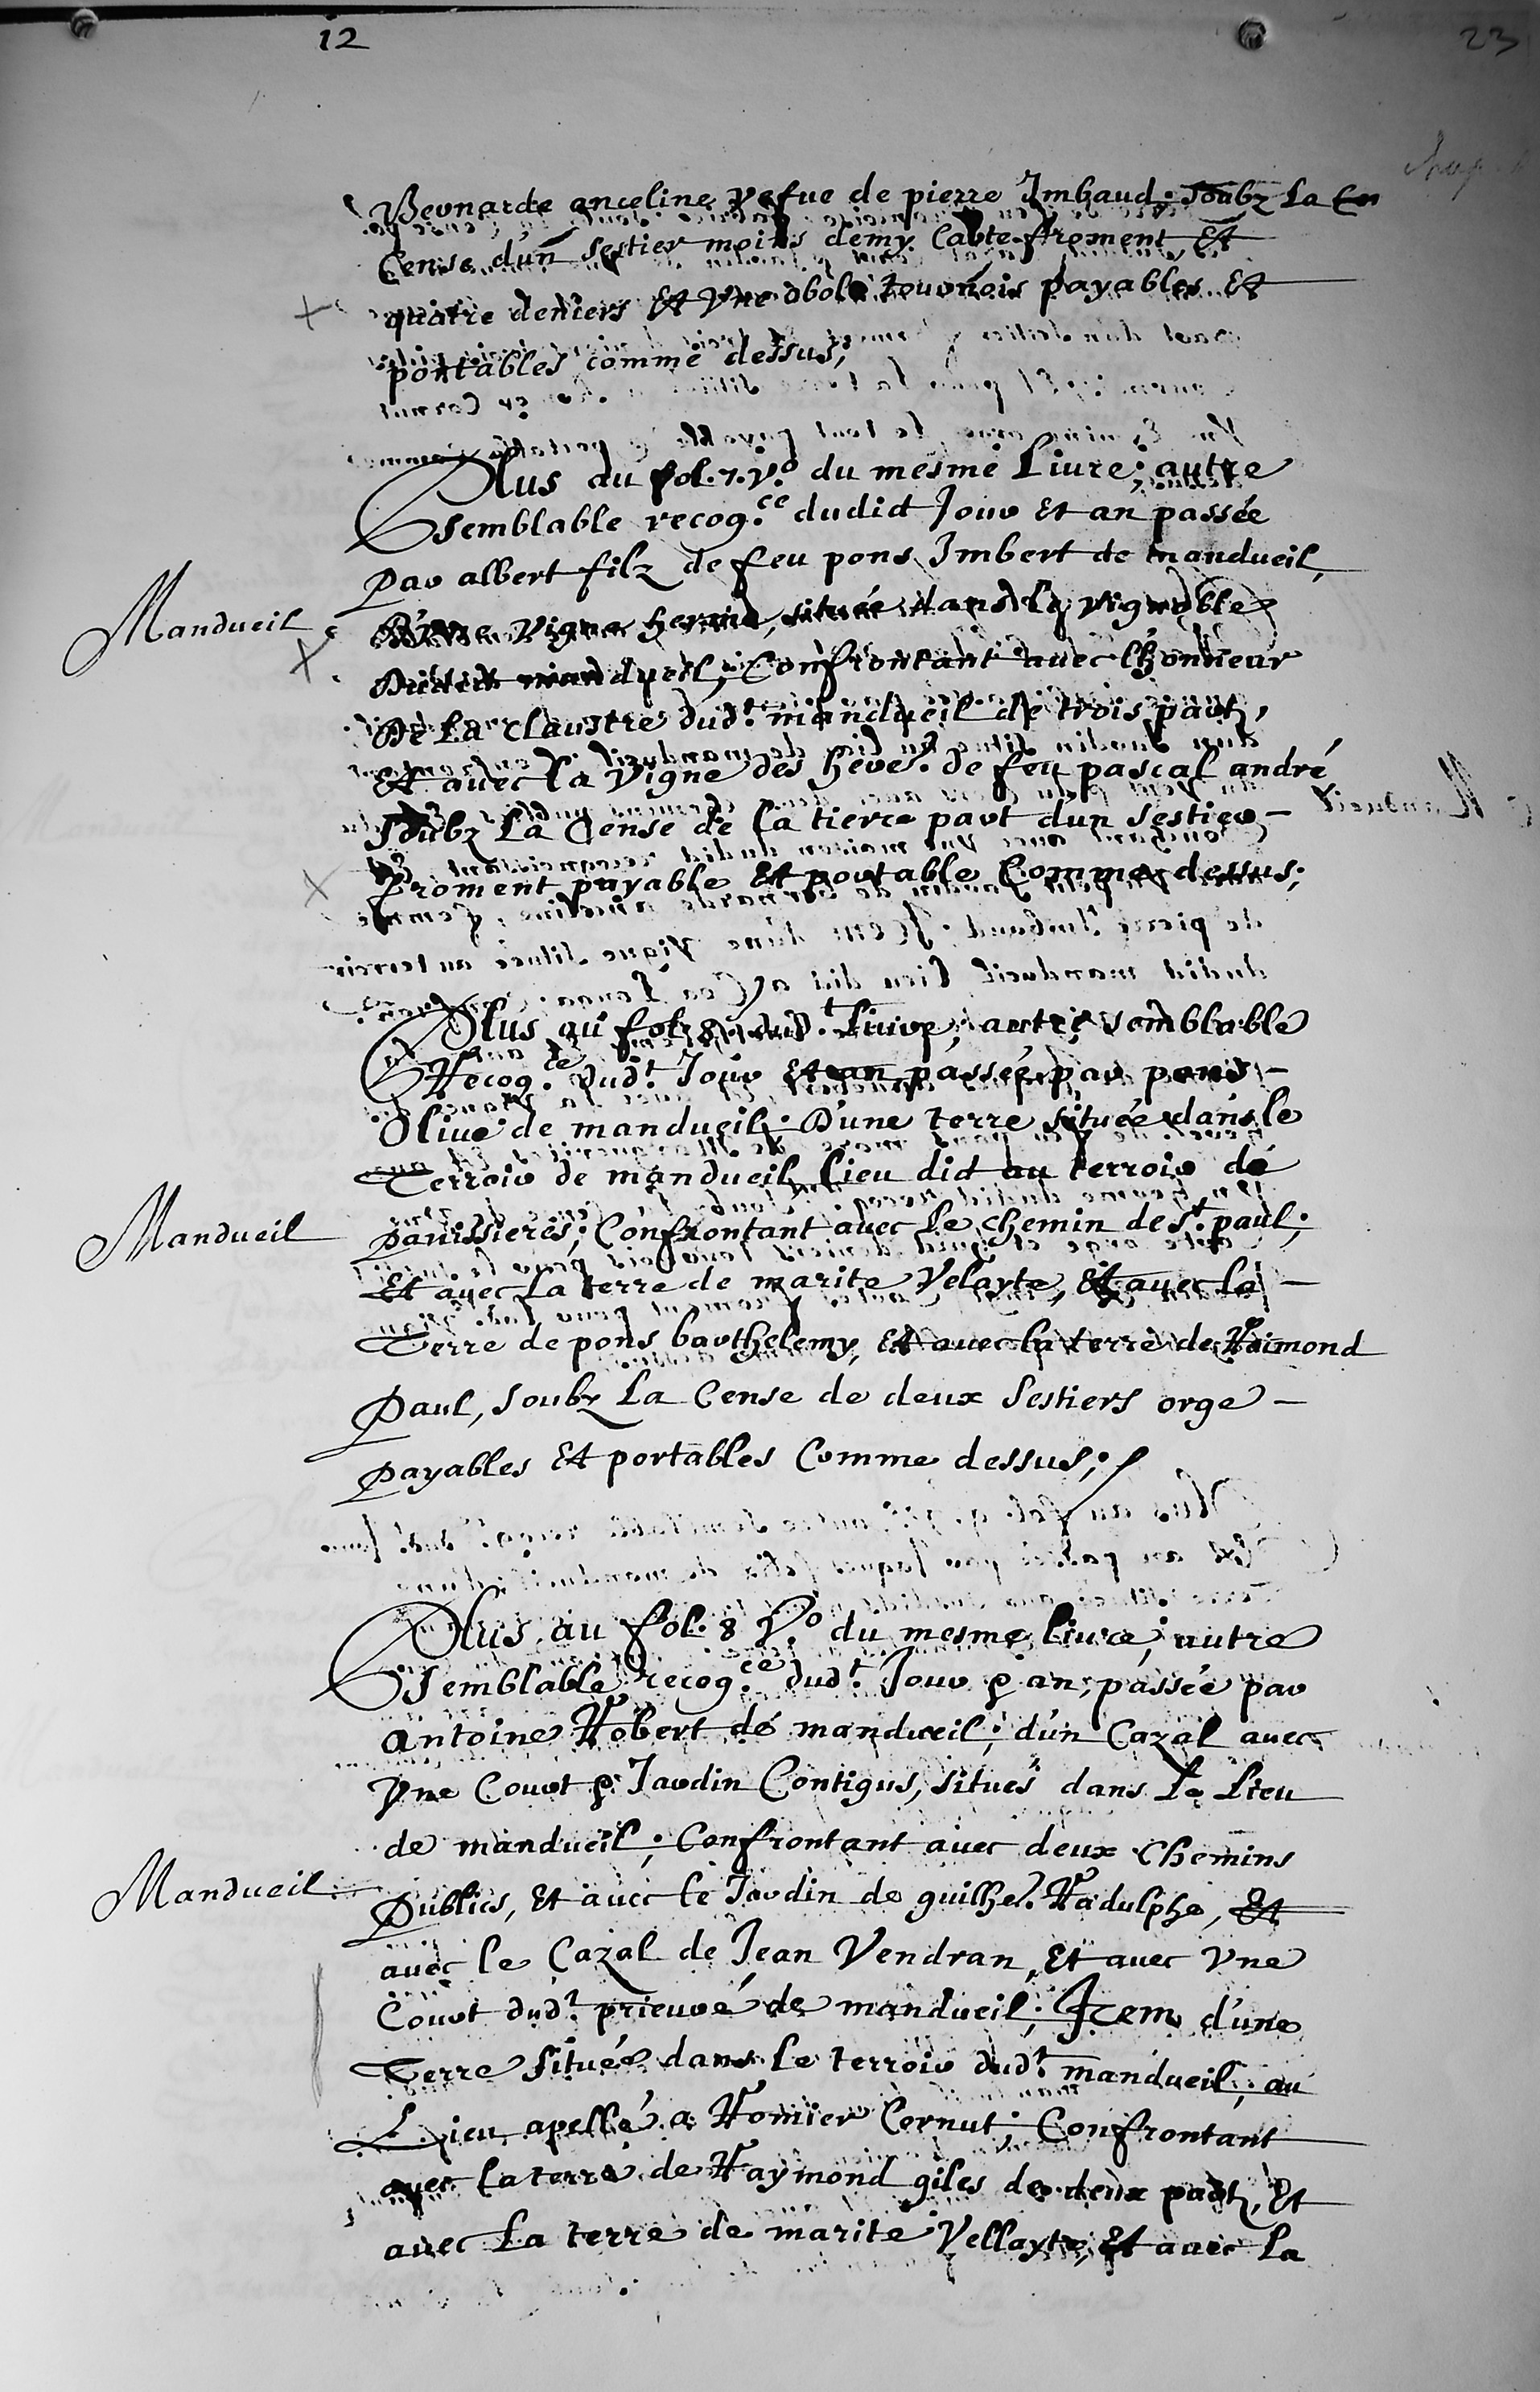 12
23
Bernarde anceline vefue de pierre Imbaud; Soubz La
Cense d'un sestier moins demy Carte froment, Et
quatre deniers Et Vne obole tournois payables Et
portables comme dessus;
Plus au fol. 7. v.o du mesme Liure; autre
semblable recog.ce dudict Jour Et an passée
Par albert filz de feu pons Imbert de mandueil,
Mandueil
D'vne vigne herme, située dans le vignoble
dudict mandueil; Confrontant auec l'honneur
De La claustre dud.t mandueil de trois partz,
Et auec la vigne des hers. de feu pascal andré
Soubz La Cense de la tierce part dun sestier
froment payable Et portable Comme dessus;
Plus au fol. 8. dud.t Liure; autre semblable
Recog.ce dud.t Jour Et an passée par pons
Oliue de mandueil; D'une terre située dans le
Terroir de mandueil, Lieu dict au terroir de
Mandueil
Panissieres; Confrontant auec Le chemin de S.t paul;
Et auec La terre de marite Velayte, Et auec la
Terre de pons barthelemy, Et auec la terre de Raimond
Paul, soubz La Cense de deux sestiers orge
Payables Et portables Comme dessus;
Plus au fol. 8 V.o du mesme liure; autre
Semblable recog.ce dud.t Jour & an, passée par
Antoine Robert de mandueil; d'un Cazal auec
Vne Court & Jardin Contigus, situés dans Le Lieu
de mandueil; Confrontant auec deux Chemins
Mandueil
Publics, Et auec le Jardin de guilhe. Radulphe, Et
auec le Cazal de Jean Vendran, Et auec Vne
Court dud.t prieuré de mandueil; Item d'une
Terre située dans Le terroir dud.t mandueil, au
Lieu apellé a Romier Cernut; Confrontant
auec La terre de Raymond giles de deux partz, Et
auec La terre de marite Vellayte, Et auec La